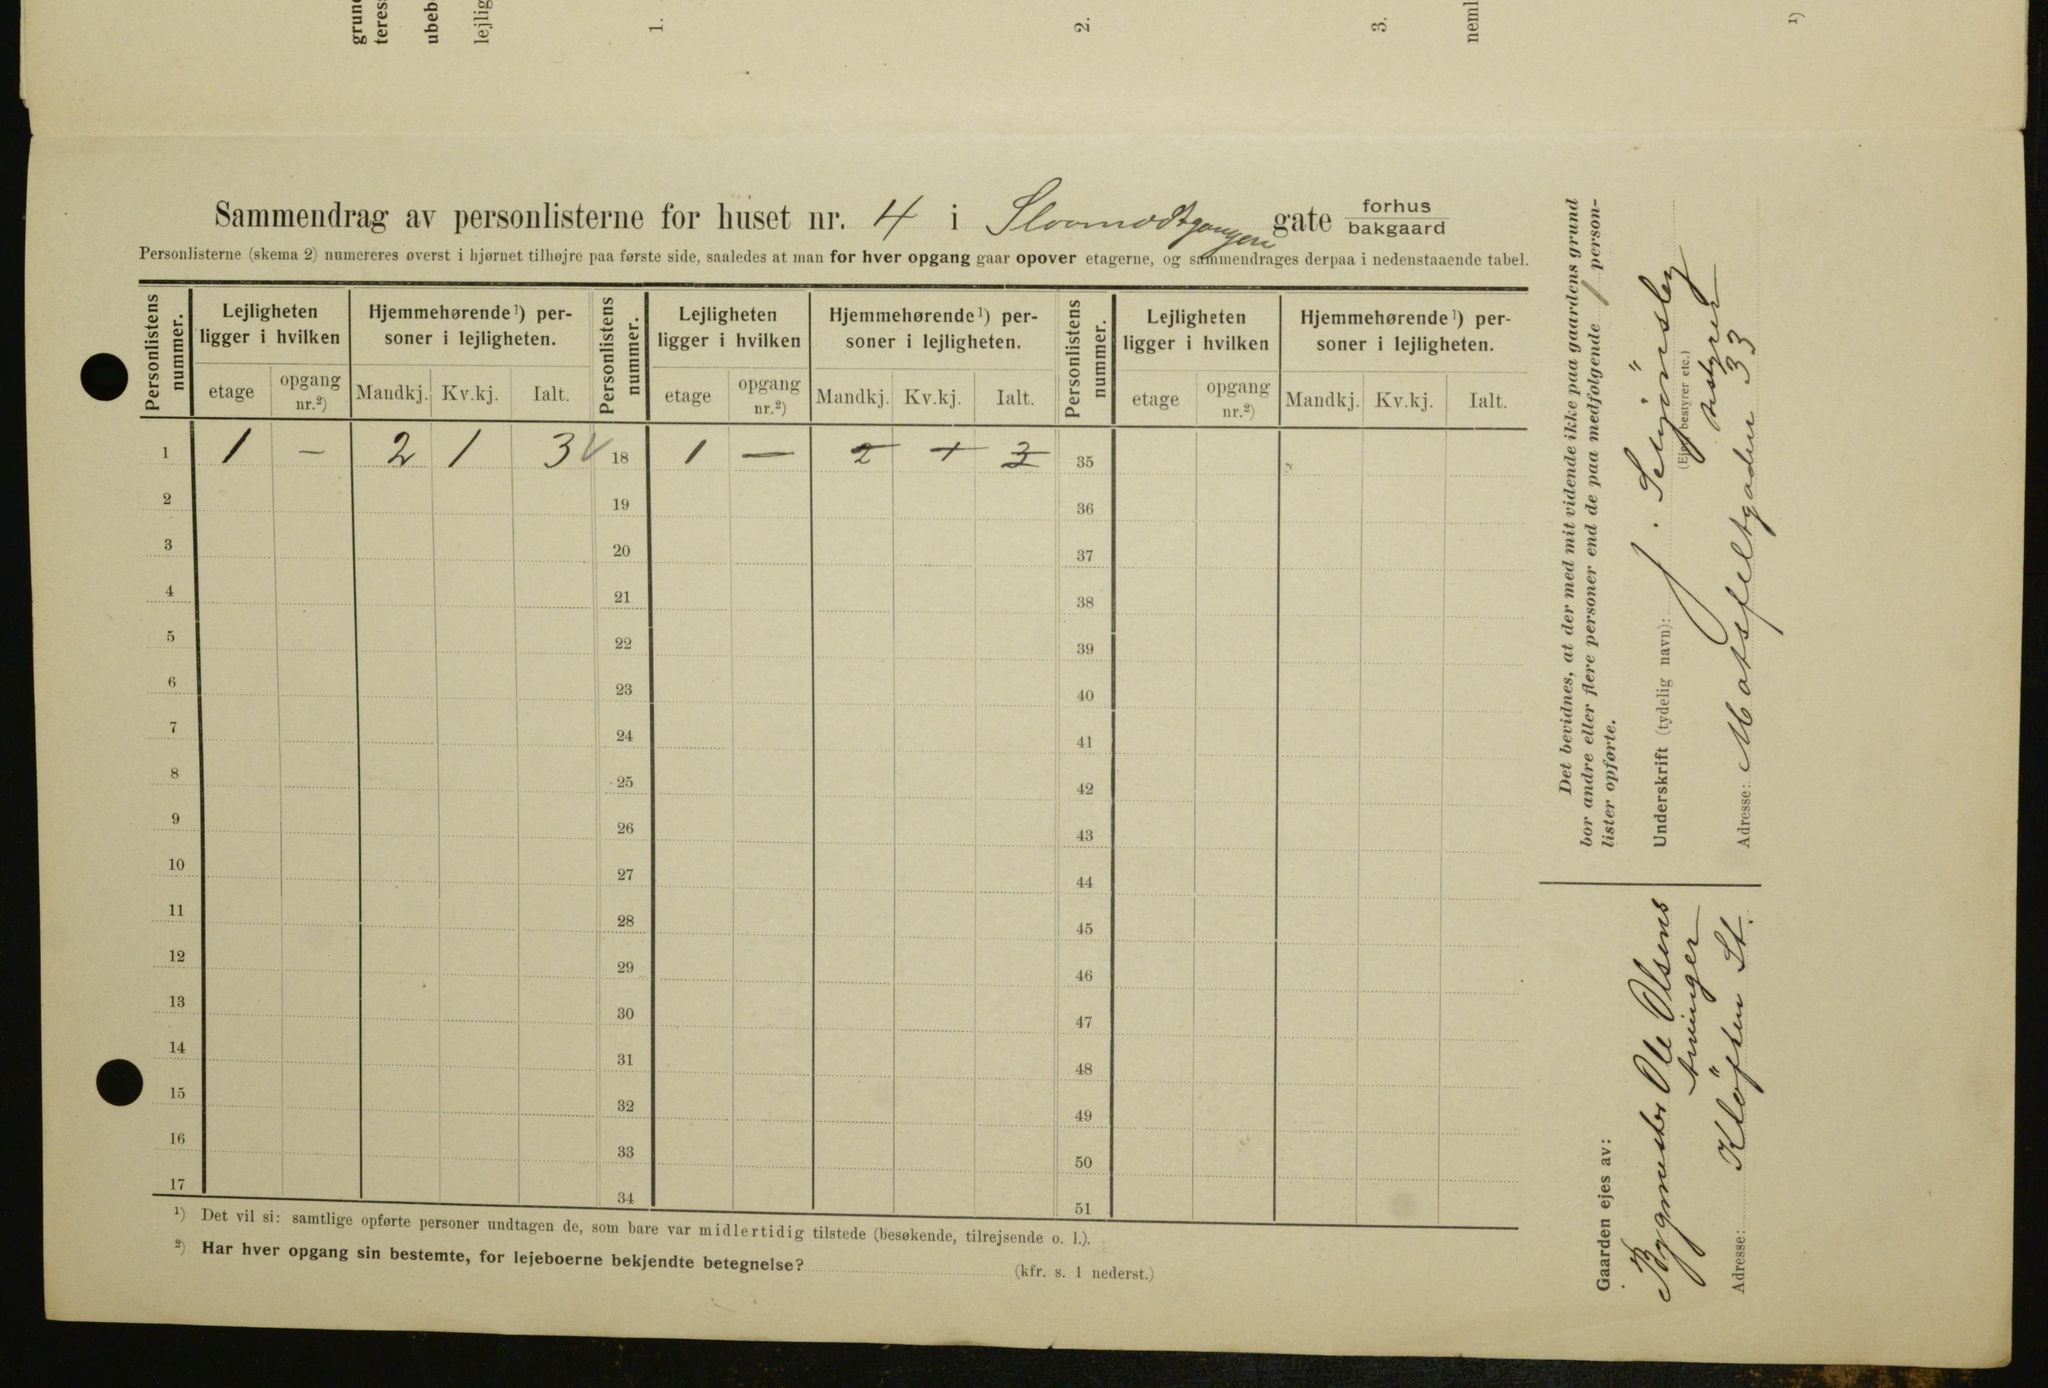 grun
teres
ubeb
lejlig
1.
2.
3.
neml
1)
Sammendrag av personlisterne for huset nr. 4 i gate forhus
bakgaard
Personlisterne (skema 2) numereres øverst i hjørnet tilhøjre paa første side, saaledes at man for hver opgang gaar opover etagerne, og sammendrages derpaa i nedenstaaende tabel.
Personlistens nummer. Lejligheten ligger i hvilken Hjemmehørende 1) per-soner i lejligheten. Personlistens nummer. Lejligheten ligger i hvilken Hjemmehørende 1) per-soner i lejligheten. Personlistens nummer. Lejligheten ligger i hvilken Hjemmehørende 1) per-soner i lejligheten.
etage opgang nr.2) Mandkj. Kv.kj. Ialt. etage opgang nr.2) Mandkj. Kv.kj. Ialt. etage opgang nr.2) Mandkj. Kv.kj. Ialt.
1 1 — 2 1 3 √ 18 1 — 2 1 3 35
2 19 36
3 20 37
4 21 38
5 22 39
6 23 40
7 24 41
8 25 42
9 26 43
10 27 44
11 28 45
12 29 46
13 30 47
14 31 48
15 32 49
16 33 50
17 34 51
1) Det vil si: samtlige opførte personer undtagen de, som bare var midlertidig tilstede (besøkende, tilrejsende o. l.).
2) Har hver opgang sin bestemte, for lejeboerne bekjendte betegnelse? (kfr. s. 1 nederst.)
Det bevidnes, at der med mit vidende ikke paa gaardens grund
bor andre eller flere personer end de paa medfølgende 1 person-
lister opførte.
Underskrift (tydelig navn): J.
(Ejer, bestyrer etc.)
bestyrer
Adresse: 33
Gaarden ejes av:
Bygmester Ole Olsens
arvinger
Adresse: Kløften St.